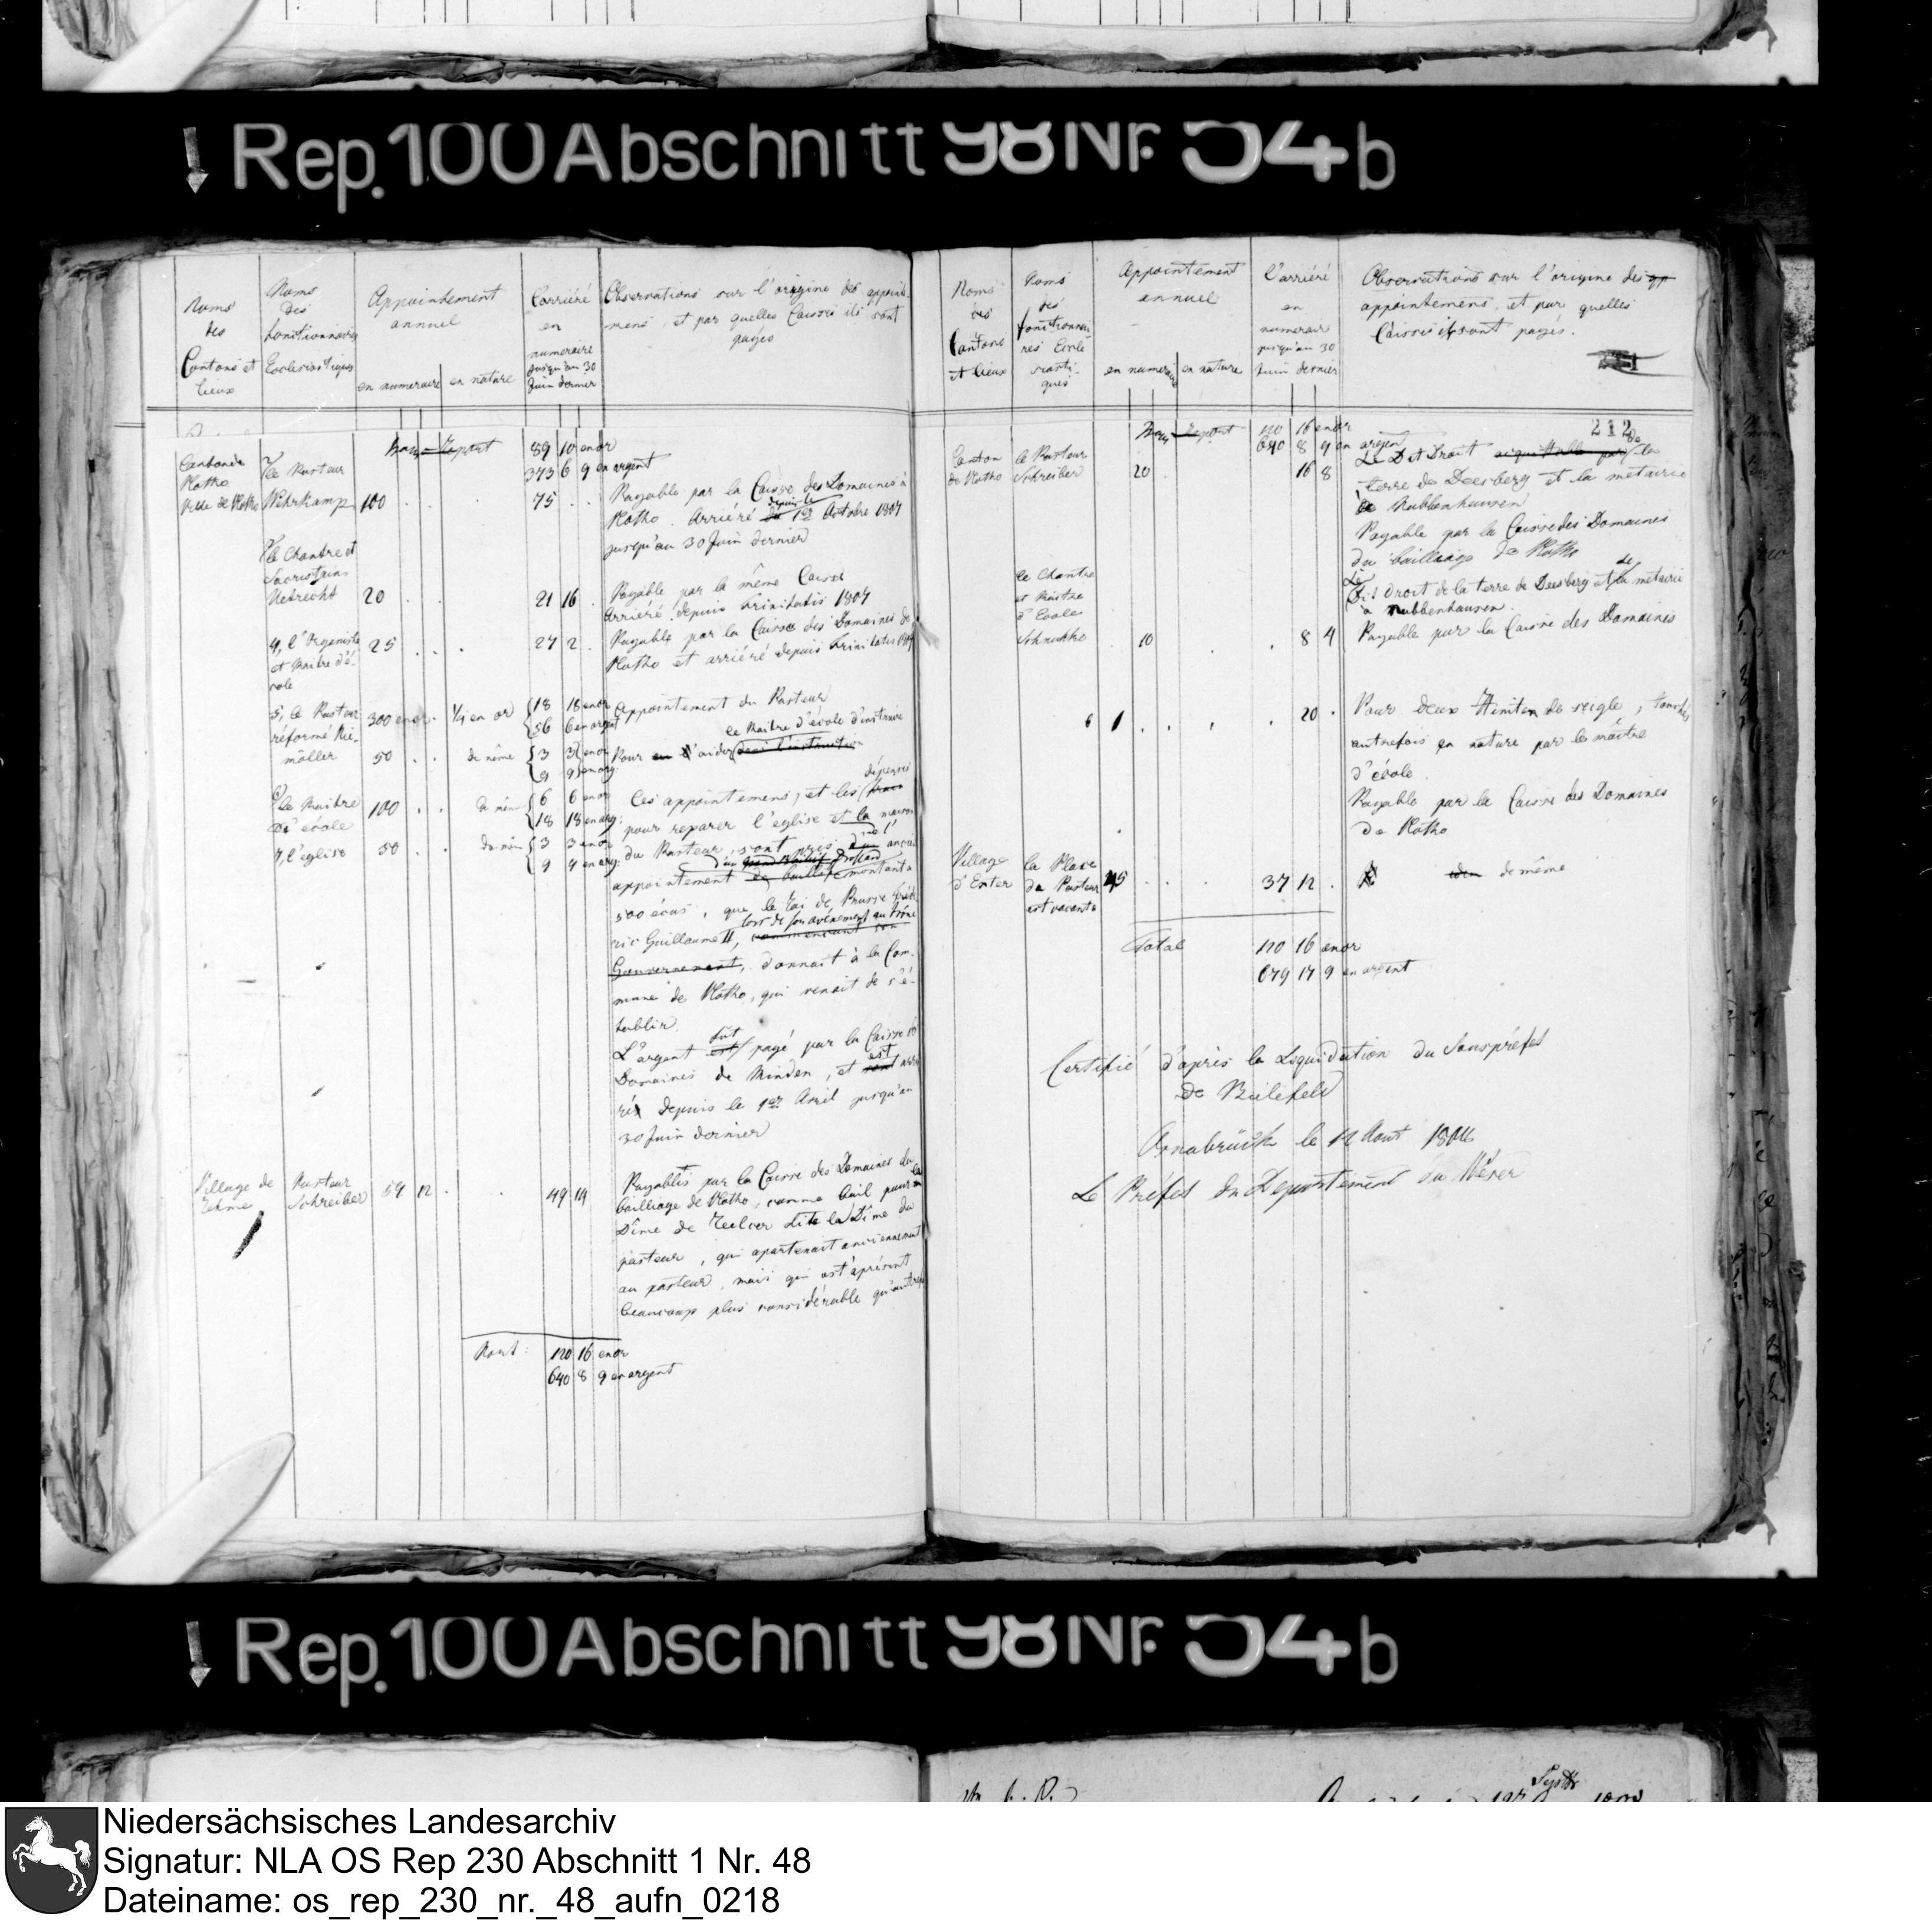 Rep. 100 Abschnitt 98 Nr. 54 b
Noms des Cantons et lieux
Noms des fonctionnaires Ecclesiastiques
Appointement annuel
en numeraire en nature
L'arriéré en numeraire jusqu'au 30 Juin dernier
Observations sur l'origine des appointemens, et par quelles Caisses ils sont payés
Report 89 10 en or
373 6 9 en argent
Canton de Vlotho
Ville de Vlotho
le Pasteur Wehrkamp 100 . . 75 . .
Payable par la Caisse des Domaines à
Vlotho. Arriéré depuis le 1er Octobre 1807
jusqu'au 30 Juin dernier
le Chantre et
Sacristain
20 . . 21 16 .
Payable par la même Caisse
Arriéré depuis Trinitatis 1807
4, l'Organiste
et Maitre d'é-
cole
25 . . . 27 2 .
Payable par la Caisse des Domaines de
Vlotho et arriéré depuis Trinitatis
5, le Pasteur
réformé
möller
300 en or . 1/4 en or
18 18 en or
56 6 en argent
Appointement du Pasteur
50 . . de même
3 3 en or
9 9 en arg:
le Maitre d'école d'instruire
Pour
6, le Maitre
d'école
100 . . de même
6 6 en or
18 18 en arg:
7, l'eglise 50 . . de même
3 3 en or
9 9 en arg:
Ces appointemens, et les dépenses
pour reparer l'eglise et la maison
du Pasteur, sont pris d'un ancien
appointement montant à
500 écus, que le Roi de Prusse
Guillaume II, lors de son avénement au trône
Gouvernement, donnait à la Com-
mune de Vlotho, qui venait de s'é-
tablir.
L'argent fût payé par la Caisse des
Domaines de Minden, et est
depuis le 1er Avril jusqu'au
30 Juin dernier
Village de
Rehme
Pasteur
Schreiber
59 12 . . 49 14
Payables par la Caisse des Domaines du
bailliage de Vlotho, comme bail pour la
Dîme de dite la Dîme du
pasteur, qui apartenait anciennement
au pasteur, mais qui est àprésent
beaucoup plus considérable
110 16 en or
640 8 9 en argent
Noms des Cantons et lieux
Noms des fonctionnaires Ecclésiastiques
Appointement annuel
en numeraire en nature
L'arriéré en numeraire jusqu'au 30 Juin dernier
Observations sur l'origine des
appointemens, et par quelles
Caisses ils sont payés.
212
Report 110 16 en or
640 8 9 en argent
Canton
de Vlotho
le Pasteur
Schreiber
20 16 8
Le Dit Droit de la
terre de Deesberg et la metairie
à Rubbenhausen
Payable par la Caisse des Domaines
du bailliage de Vlotho
le Chantre
et Maitre
d'Ecole
10 . . 8 4
Dit Droit de la terre de Deesberg et de la metairie
à Rubbenhausen.
Payable par la Caisse des Domaines
1 . . . . 20 .
Pour deux Himten de seigle,
autrefois en nature par le maître
d'école.
Payable par la Caisse des Domaines
de Vlotho
Village
d'Exter
la Place
du Pasteur
est vacante
45 . . . 37 12 .
idem de même
Total 110 16 en or
679 17 9 en argent
Certifié d'après la Liquidation du Souspréfet
de Bielefeld
Osnabrück le 12 Aout
Le Préfet du Departement du Wéser
Rep. 100 Abschnitt 98 Nr. 54 b
Niedersächsisches Landesarchiv
Signatur: NLA OS Rep 230 Abschnitt 1 Nr. 48
Dateiname: os_rep_230_nr._48_aufn_0218